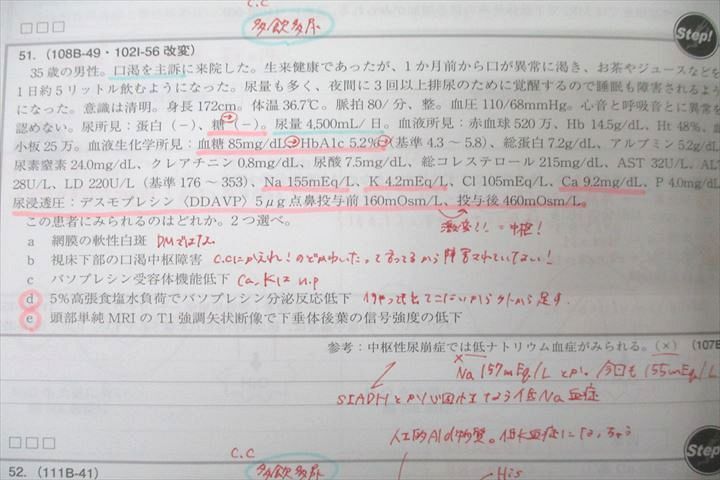 C.C
多飲多尿
Step!
51.（108B-49・102I-56 改変）
35 歳の男性。口渇を主訴に来院した。生来健康であったが、1 か月前から口が異常に渇き、お茶やジュースなどを
1 日約 5 リットル飲むようになった。尿量も多く、夜間に 3 回以上排尿のために覚醒するので睡眠も障害されるよう
になった。意識は清明。身長 172cm。体温 36.7℃。脈拍 80/ 分、整。血圧 110/68mmHg。心音と呼吸音とに異常を
認めない。尿所見：蛋白（−）、糖（−）。尿量 4,500mL/ 日。血液所見：赤血球 520 万、Hb 14.5g/dL、Ht 48%、
小板 25 万。血液生化学所見：血糖 85mg/dL、HbA1c 5.2%（基準 4.3 ～ 5.8）、総蛋白 7.2g/dL、アルブミン 5.2g/d
尿素窒素 24.0mg/dL、クレアチニン 0.8mg/dL、尿酸 7.5mg/dL、総コレステロール 215mg/dL、AST 32U/L、AL
28U/L、LD 220U/L（基準 176 ～ 353）、Na 155mEq/L、K 4.2mEq/L、Cl 105mEq/L、Ca 9.2mg/dL、P 4.0mg/d
尿浸透圧：デスモプレシン〈DDAVP〉5μg 点鼻投与前 160mOsm/L、投与後 460mOsm/L。
激変!! = 中枢!
この患者にみられるのはどれか。2 つ選べ。
a 網膜の軟性白斑 DMではない
b 視床下部の口渇中枢障害 C.Cにかえれ! のどかわいたって言ってるから障害されていない!
c バソプレシン受容体機能低下 Ca, Kは n.p
d 5%高張食塩水負荷でバソプレシン分泌反応低下
e 頭部単純 MRI の T1 強調矢状断像で下垂体後葉の信号強度の低下
参考：中枢性尿崩症では低ナトリウム血症がみられる。（×）（107B
Na 157mEq/L とか。今回も 155mEq/L
SIADH とか
低Na血症
C.C
多飲多尿
His
Step
52.（111B-41）